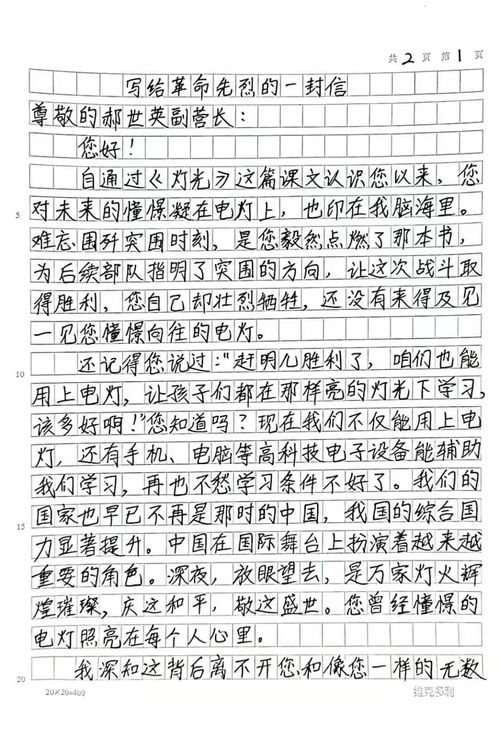 共2页 第1页
写给革命先烈的一封信
尊敬的郝世英副营长：
您好！
自通过《灯光》这篇课文认识您以来，您
5 对未来的憧憬凝在电灯上，也印在我脑海里。
难忘围歼突围时刻，是您毅然点燃了那本书，
为后续部队指明了突围的方向，让这次战斗取
得胜利，您自己却壮烈牺牲，还没有来得及见
一见您憧憬向往的电灯。
10 还记得您说过："赶明儿胜利了，咱们也能
用上电灯，让孩子们都在那样亮的灯光下学习，
该多好啊！"您知道吗？现在我们不仅能用上电
灯，还有手机、电脑等高科技电子设备能辅助
我们学习，再也不愁学习条件不好了。我们的
15 国家也早已不再是那时的中国，我国的综合国
力显著提升。中国在国际舞台上扮演着越来越
重要的角色。深夜，放眼望去，是万家灯火辉
煌璀璨，庆这和平，敬这盛世。您曾经憧憬的
电灯照亮在每个人心里。
20 我深知这背后离不开您和像您一样的无数
20×20=400 维克多利